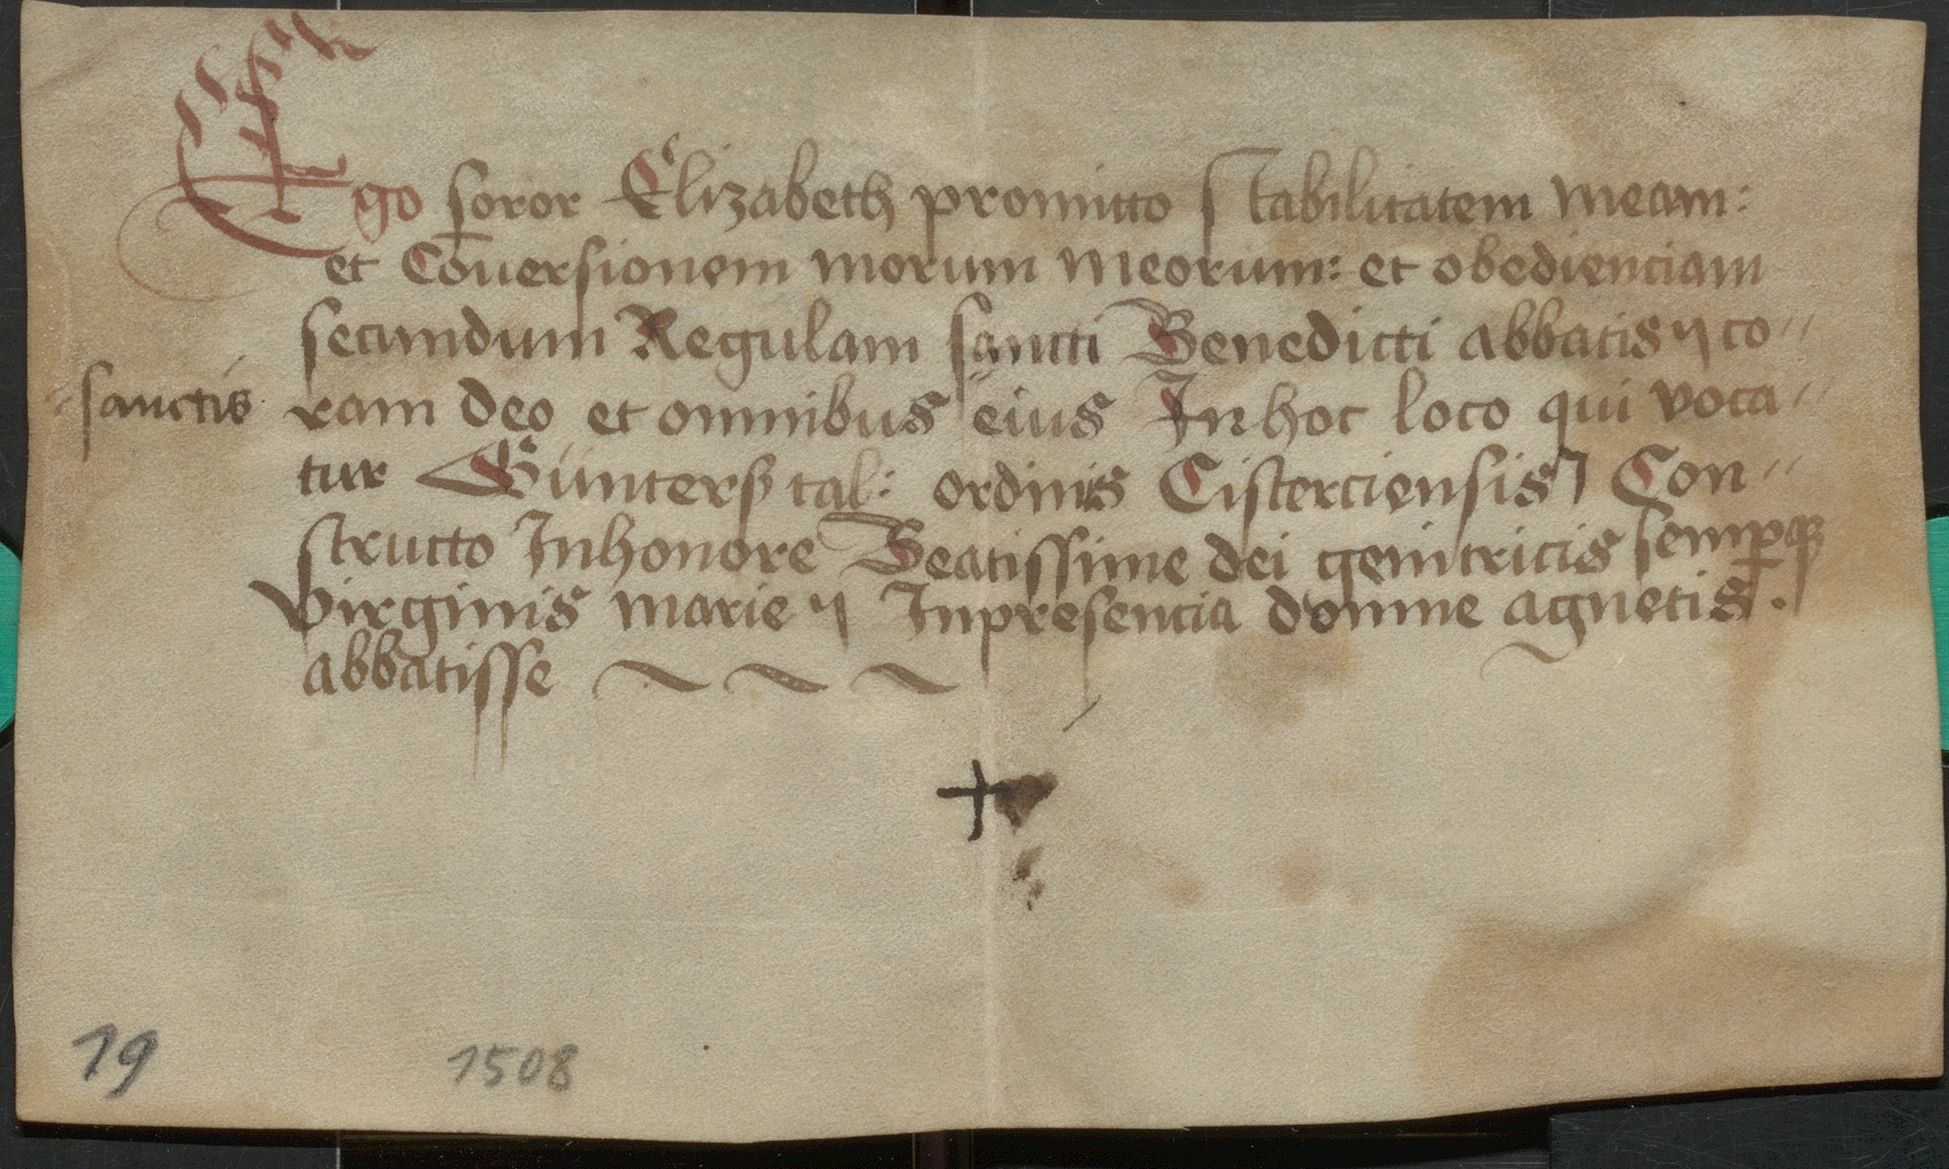 Ego soror Elizabeth promitto stabilitatem meam:
et Cōuersionem morum meorum: et obedienciam
secundum Regulam sancti Benedicti abbatis co〃
〃sanctis ram deo et omnibus eius In hoc loco qui voca〃
tur Günterßtal: ordinis Cisterciensis Con〃
structo In honore Beatissime dei genitricis semꝑqꝫ
virginis marie In presencia domne agnetis.
abbatisse
+
19 1508